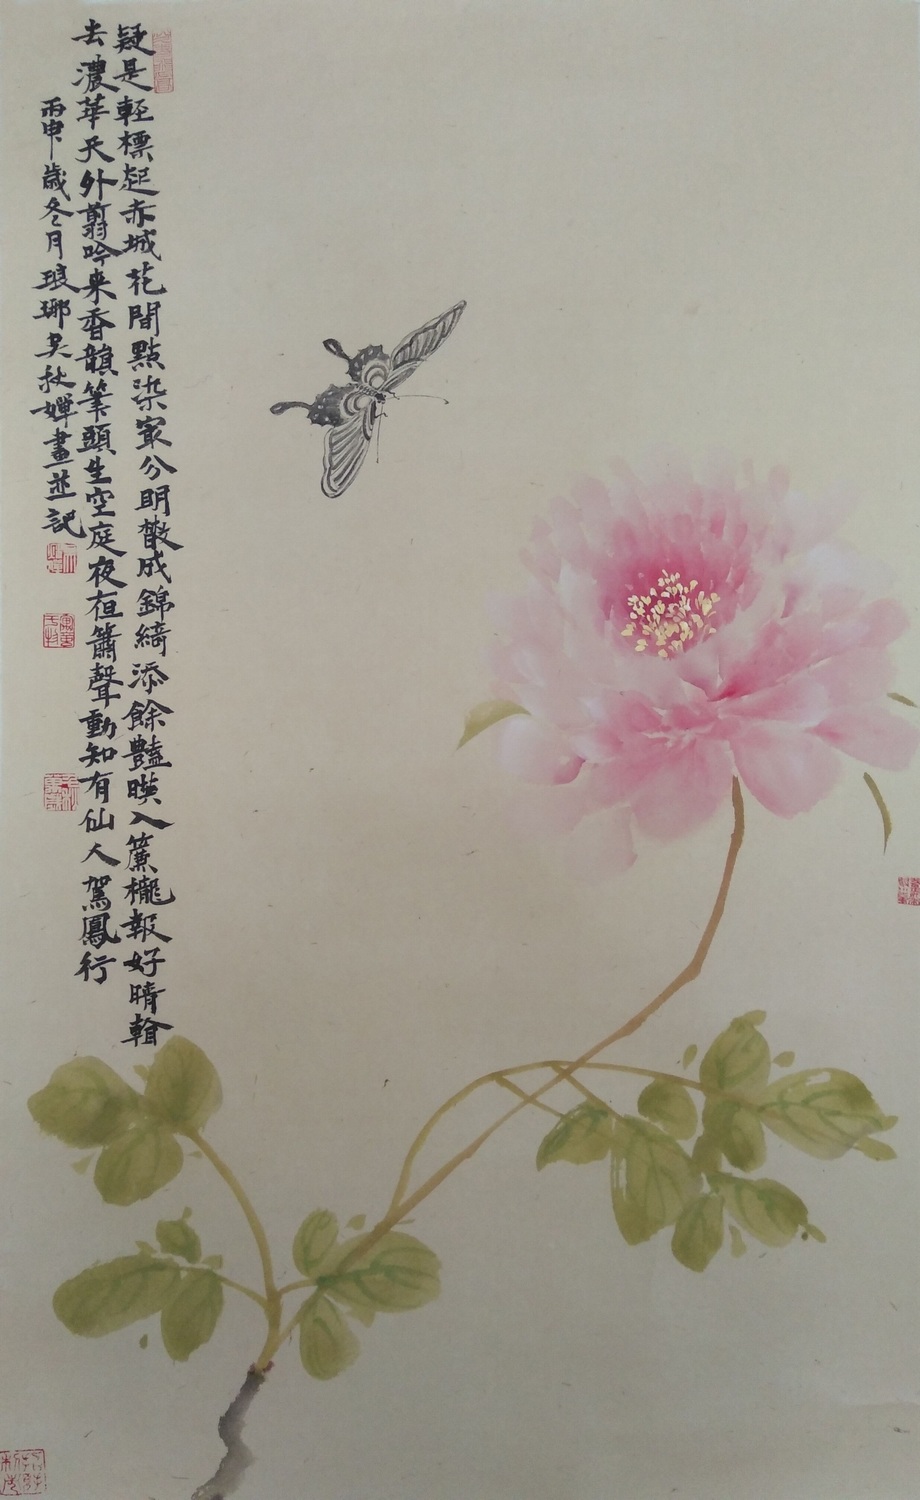 疑是輕標起赤城花間點染最分明散成錦綺添餘豔暎入簾櫳報好晴翰
去濃華天外翦吟来香韻筆頭生空庭夜夜簫聲動知有仙人駕鳳行
丙申歲冬月琅琊吴秋嬋畫並記